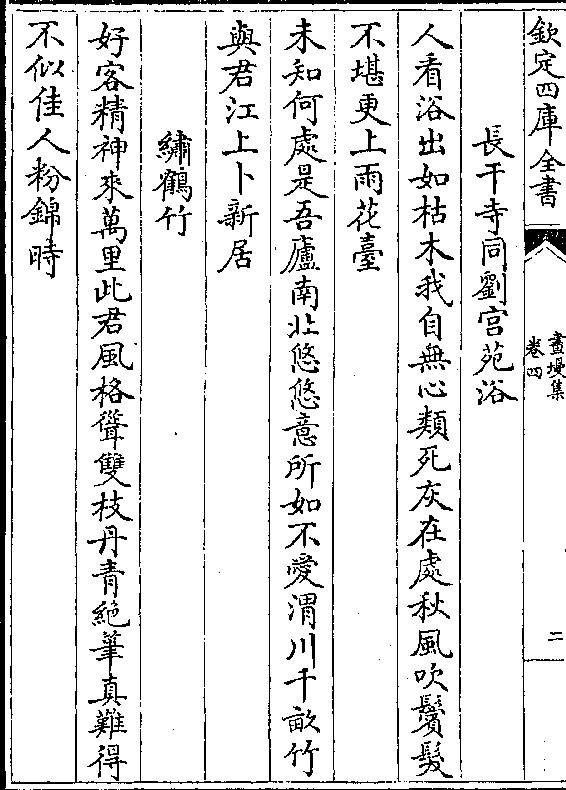 欽定四庫全書
畫墁集
卷四
二
長干寺同劉宫苑浴
人看浴出如枯木我自無心類死灰在處秋風吹鬢髮
不堪更上雨花臺
未知何處是吾廬南北悠悠意所如不愛渭川千畝竹
與君江上卜新居
繡鶴竹
好客精神來萬里此君風格聳雙枝丹青絶筆真難得
不似佳人粉錦時